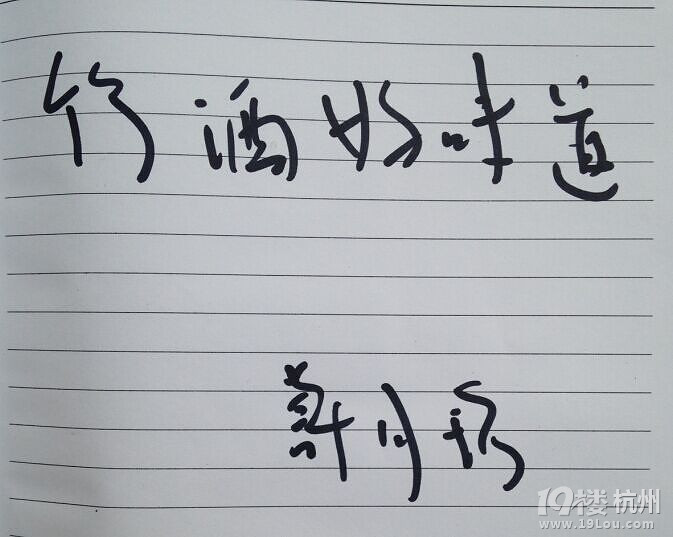 竹酒好味道
許月珍
19楼 杭州
www.19Lou.com